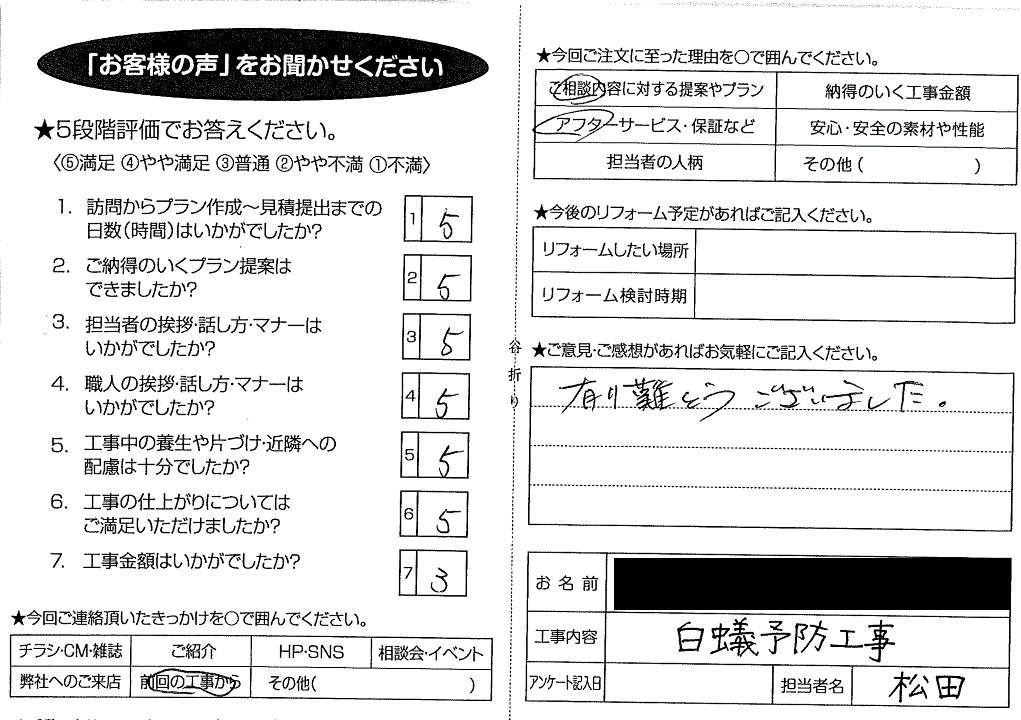 「お客様の声」をお聞かせください
★5段階評価でお答えください。
〈⑤満足 ④やや満足 ③普通 ②やや不満 ①不満〉
1. 訪問からプラン作成〜見積提出までの
日数(時間)はいかがでしたか?
1 5
2. ご納得のいくプラン提案は
できましたか?
2 5
3. 担当者の挨拶・話し方・マナーは
いかがでしたか?
3 5
4. 職人の挨拶・話し方・マナーは
いかがでしたか?
4 5
5. 工事中の養生や片づけ・近隣への
配慮は十分でしたか?
5 5
6. 工事の仕上がりについては
ご満足いただけましたか?
6 5
7. 工事金額はいかがでしたか?
7 3
★今回ご連絡頂いたきっかけを○で囲んでください。
チラシ・CM・雑誌 ご紹介 HP・SNS 相談会・イベント
弊社へのご来店 前回の工事から その他( )
谷折り
★今回ご注文に至った理由を○で囲んでください。
ご相談内容に対する提案やプラン 納得のいく工事金額
アフターサービス・保証など 安心・安全の素材や性能
担当者の人柄 その他( )
★今後のリフォーム予定があればご記入ください。
リフォームしたい場所
リフォーム検討時期
★ご意見・ご感想があればお気軽にご記入ください。
有り難とうございました。
お名前
工事内容 白蟻予防工事
アンケート記入日 担当者名 松田